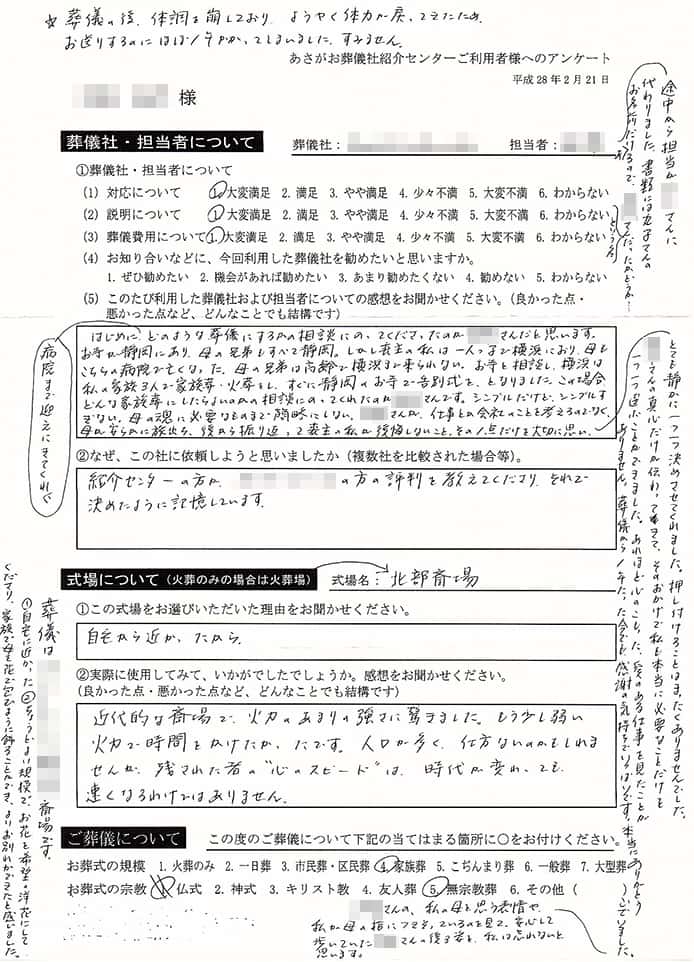 ☆葬儀の後、体調を崩しており、ようやく体力が戻ってきたため、
お送りするのにほぼ1年かかってしまいました。すみません。
あさがお葬儀社紹介センターご利用者様へのアンケート
平成28年2月21日
様
葬儀社・担当者について
葬儀社：
担当者：
途中から担当が
さんに
代わりました。書類には
さんの
お名前だけあるので、
さんだったかどうか…
①葬儀社・担当者について
(1) 対応について 1. 大変満足 2. 満足 3. やや満足 4. 少々不満 5. 大変不満 6. わからない
(2) 説明について 1. 大変満足 2. 満足 3. やや満足 4. 少々不満 5. 大変不満 6. わからない
(3) 葬儀費用について 1. 大変満足 2. 満足 3. やや満足 4. 少々不満 5. 大変不満 6. わからない
(4) お知り合いなどに、今回利用した葬儀社を勧めたいと思いますか。
1. ぜひ勧めたい 2. 機会があれば勧めたい 3. あまり勧めたくない 4. 勧めない 5. わからない
(5) このたび利用した葬儀社および担当者についての感想をお聞かせください。（良かった点・
悪かった点など、どんなことでも結構です）
はじめに、どのような葬儀にするかの相談にのってくださったのが
さんだと思います。
お寺が静岡にあり、母の兄弟もすべて静岡。しかし喪主の私は一人っ子で横浜におり、母も
こちらの病院で亡くなった。母の兄弟は高齢で横浜まで来られない。お寺も相談し、横浜は
私の家族3人で家族葬・火葬をし、すぐに静岡のお寺で告別式を、となりました。この場合
どんな家族葬にしたらよいかの相談にのってくれたのが
さんです。シンプルだけど、シンプルす
ぎない。母の魂に必要なものまで簡略にしない。
さんが、仕事とか会社のことも考えるのでなく、
母が安らかに旅立ち、後から振り返って喪主の私が後悔しないこと、その1点だけを大切に思い、
病院まで迎えにきてくれて
とても静かに一つ一つ決めさせてくれました。押し付けることはまったくありませんでした。
さんの真心だけが伝わってきて、そのおかげで私も本当に必要なことだけを
一つ一つ選ぶことができました。あれほど心のこもった、愛のある仕事を見たことが
ありません。葬儀から1年たった今でも感謝の気持ちでいっぱいです。本当にありがとう
ございました。
②なぜ、この社に依頼しようと思いましたか（複数社を比較された場合等）。
紹介センターの方が、
の方の評判を教えてくださり、それで
決めたように記憶しています。
式場について（火葬のみの場合は火葬場）
式場名：北部斎場
①この式場をお選びいただいた理由をお聞かせください。
自宅から近かったから。
②実際に使用してみて、いかがでしたでしょうか。感想をお聞かせください。
（良かった点・悪かった点など、どんなことでも結構です）
近代的な斎場で、火力のあまりの強さに驚きました。もう少し弱い
火力で時間をかけたかったです。人口が多く、仕方ないのかもしれま
せんが、残された者の“心のスピード”は、時代が変わっても
速くなるわけではありません。
葬儀は
斎場です。
①自宅に近かった②ちょうどよい規模で、お花を希望の洋花にして
くださり、家族で母を花で包むように飾ることができ、よりお別れができたと感じました。
ご葬儀について
この度のご葬儀について下記の当てはまる箇所に〇をお付けください。
お葬式の規模 1. 火葬のみ 2. 一日葬 3. 市民葬・区民葬 4. 家族葬 5. こぢんまり葬 6. 一般葬 7. 大型葬
お葬式の宗教 1. 仏式 2. 神式 3. キリスト教 4. 友人葬 5. 無宗教葬 6. その他（ ）
さんの、私の母を思う表情や、
私が母の指に
ているのを見て、安心して
歩いていた
さんの後ろ姿を、私は忘れないと
思います。